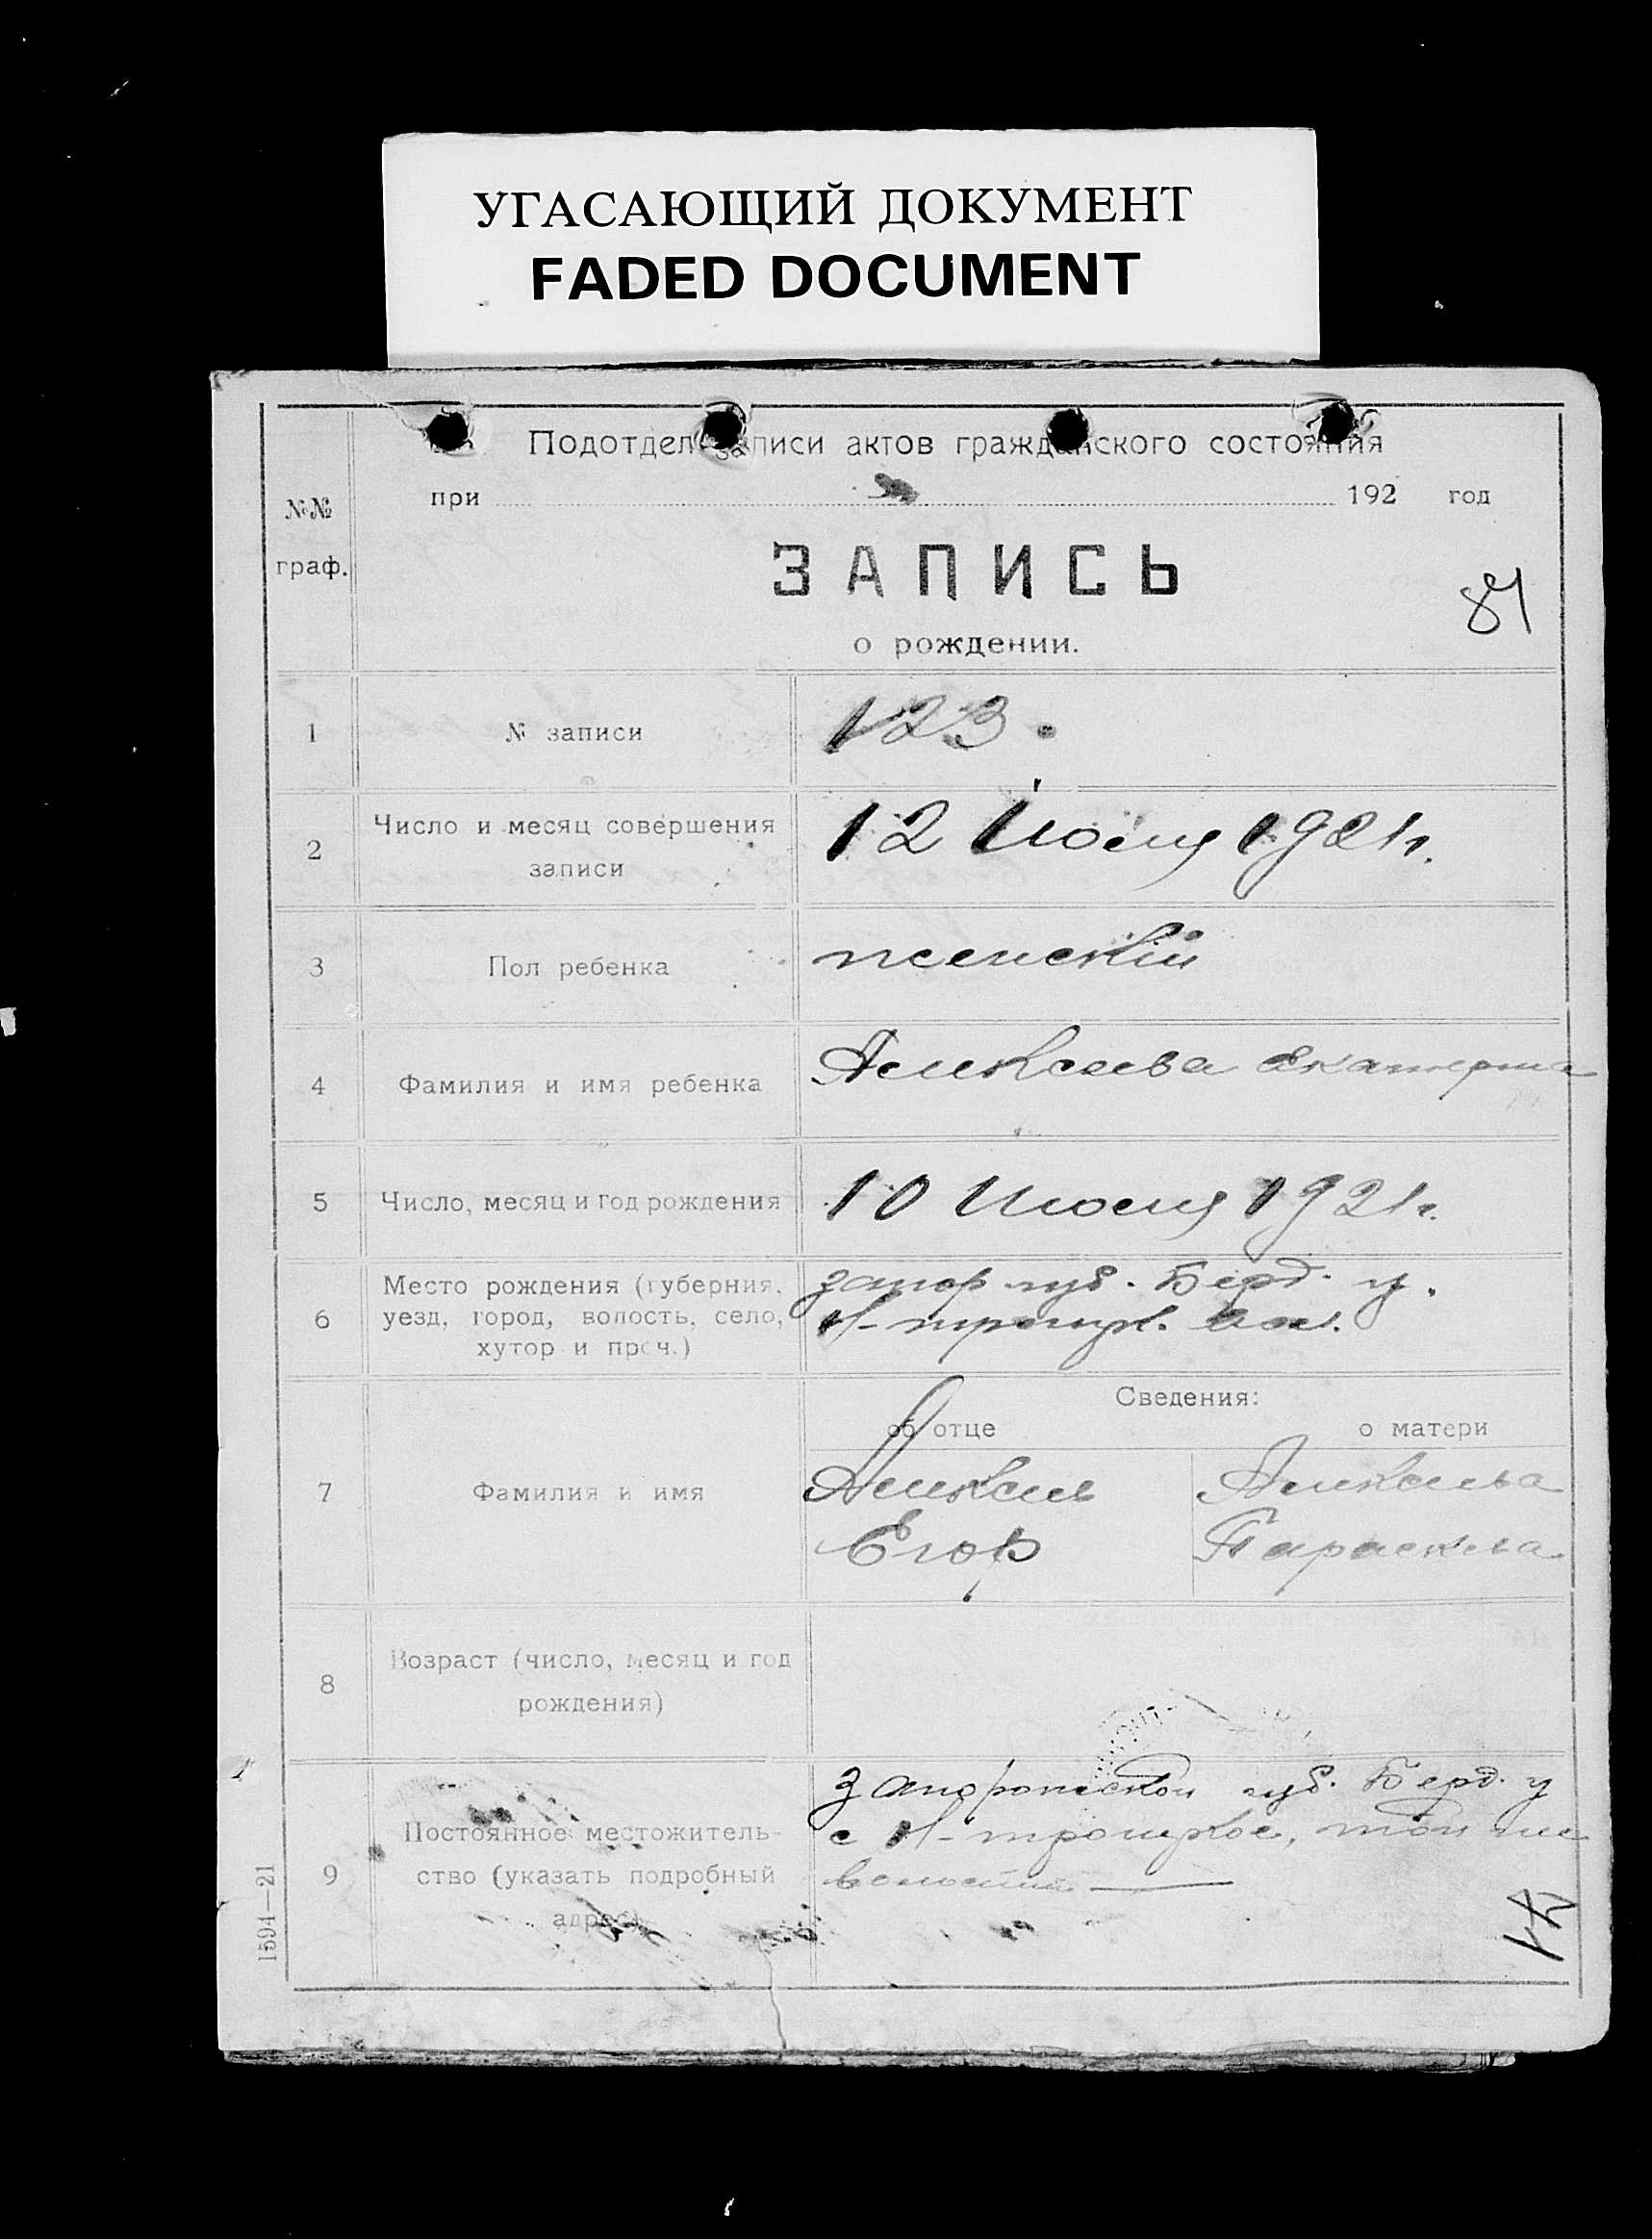 УГАСАЮЩИЙ ДОКУМЕНТ
FADED DOCUMENT
Подотдел записи актов гражданского состояния
при 192 год
№№
граф.
ЗАПИСЬ
84
о рождении.
1 № записи 123.
2 Число и месяц совершения
записи
12 Июля 1921 г.
3 Пол ребенка женский
4 Фамилия и имя ребенка Алексеева Екатерина
5 Число, месяц и год рождения 10 Июля 1921 г.
6 Место рождения (губерния,
уезд, город, волость, село,
хутор и проч.)
Запор губ. Берд. у.
Н-троицк. вол.
Сведения:
об отце о матери
7 Фамилия и имя
Алексеев Алексеева
Егор Параскева
8 Возраст (число, месяц и год
рождения)
9 Постоянное местожитель-
ство (указать подробный
адрес)
Запорожской губ. Берд. у
с Н-троицкое, той же
волости
1594—21